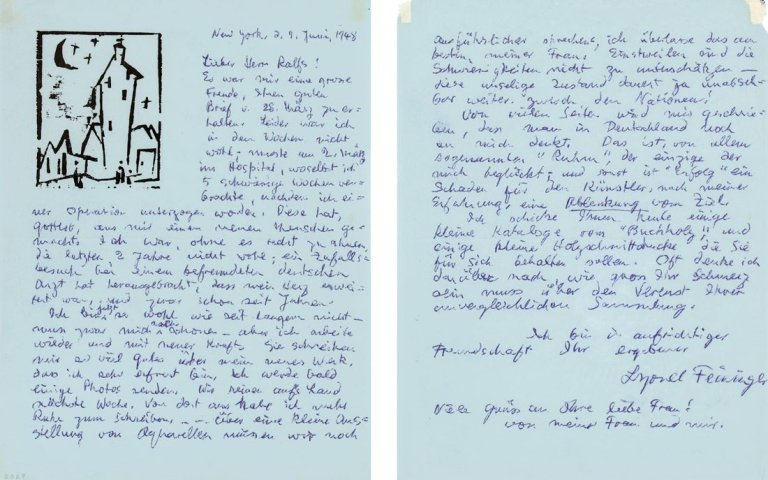 New York, d. 9. Juni, 1948
Lieber Herr Ralfs!
Es war mir eine grosse
Freude, Ihren guten
Brief v. 28. März zu er-
halten. Leider war ich
in den Wochen nicht
wohl; musste am 2. März
ins Hospital, woselbst ich
5 schwierige Wochen ver-
brachte, nachdem ich ei-
ner Operation unterzogen worden. Diese hat,
gottlob, aus mir einen neuen Menschen ge-
macht. Ich war, ohne es recht zu ahnen,
die letzten 2 Jahre nicht wohl; ein Zufalls-
besuch bei einem befreundeten deutschen
Arzt hat herausgebracht, dass mein Herz erwei-
tert war, und zwar schon seit Jahren.
Ich bin jetzt so wohl wie seit langem nicht –
muss zwar mich noch schonen – aber ich arbeite
wieder und mit neuer Kraft. Sie schreiben
mir so viel gutes über mein neues Werk,
das ich sehr erfreut bin. Ich werde bald
einige Photos senden. Wir reisen aufs Land
nächste Woche. Von dort aus habe ich mehr
Ruhe zum Schreiben. – . Über eine kleine Aus-
stellung von Aquarellen müssen wir noch
ausführlicher sprechen, ich überlasse das am
besten meiner Frau. Einstweilen sind die
Schwierigkeiten nicht zu unterschätzen –
diese unselige Zustand dauert ja unabseh-
bar weiter zwisch. den Nationen!
Von vielen Seiten wird mir geschrie-
ben, dass man in Deutschland noch
an mich denkt. Das ist, von allem
sogenannten "Ruhm", der einzige der
mich beglückt; und sonst ist "Erfolg" ein
Schaden für den Künstler, nach meiner
Erfahrung, eine Ablenkung vom Ziel.
Ich schicke Ihnen heute einige
kleine Kataloge vom "Buchholz", und
einige kleine Holzschnittdrucke die Sie
für sich behalten sollen. Oft denke ich
darüber nach, wie gross Ihr Schmerz
sein muss über den Verlust Ihrer
unvergleichlichen Sammlung.
Ich bin in aufrichtiger
Freundschaft Ihr ergebener
Lyonel Feininger
Viele Grüsse an Ihre liebe Frau!
von meiner Frau und mir.